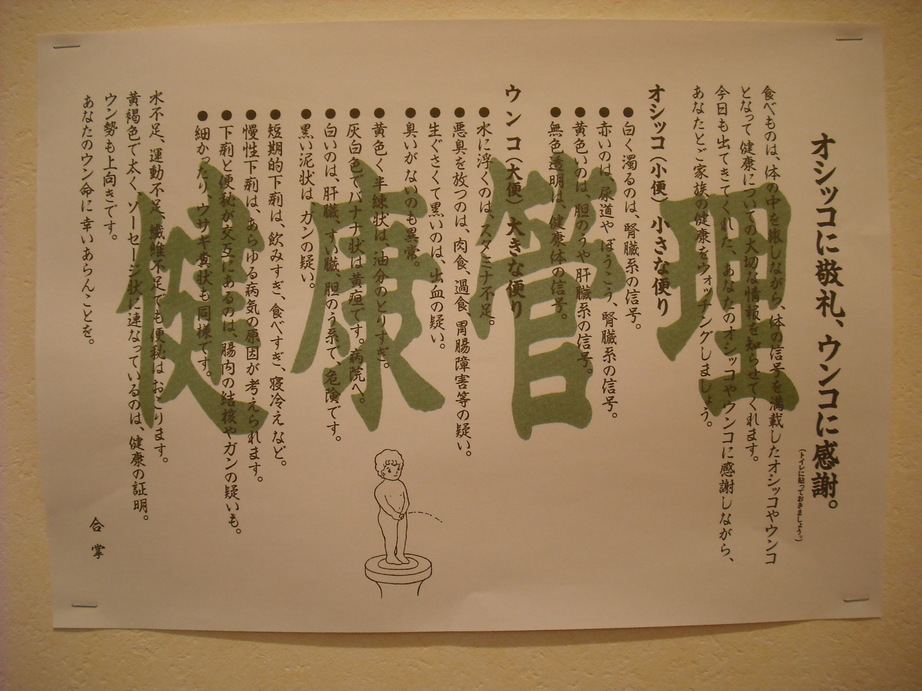 オシッコに敬礼、ウンコに感謝。
(トイレに貼っておきましょうっ)
食べものは、体の中を旅しながら、体の信号を満載したオシッコやウンコ
となって健康についての大切な情報を知らせてくれます。
今日も出てきてくれた、あなたのオシッコやウンコに感謝しながら、
あなたとご家族の健康をウォッチングしましょう。
オシッコ(小便)小さな便り
●白く濁るのは、腎臓系の信号。
●赤いのは、尿道やぼうこう、腎臓系の信号。
●黄色いのは、胆のうや肝臓系の信号。
●無色透明は、健康体の信号。
ウンコ(大便)大きな便り
●水に浮くのは、スタミナ不足。
●悪臭を放つのは、肉食、過食、胃腸障害等の疑い。
●生ぐさくて黒いのは、出血の疑い。
●臭いがないのも異常。
黄色く半練状は、油分のとりすぎ。
●灰白色でバナナ状は黄疸です。病院へ。
●白いのは、肝臓、すい臓、胆のう系で、危険です。
●黒い泥状は、ガンの疑い。
●短期的下痢は、飲みすぎ、食べすぎ、寝冷えなど。
●慢性下痢は、あらゆる病気の原因が考えられます。
●下痢と便秘が交互にあるのは、腸内の結核やガンの疑いも。
●細かったり、ウサギ糞状も同様です。
水不足、運動不足、繊維不足でも便秘はおこります。
黄褐色で太く、ソーセージ状に連なっているのは、健康の証明。
ウン勢も上向きです。
あなたのウン命に幸いあらんことを。
合掌
健康管理